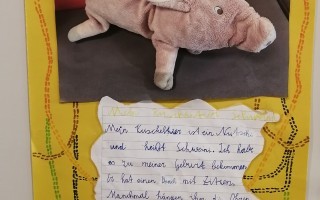 Mein Kuscheltier ist ein Nutztier
und heißt Schweini. Ich habe
es zu meiner Geburt bekommen.
Es hat einen mit Zitzen.
Manchmal hängen ihm die Ohren